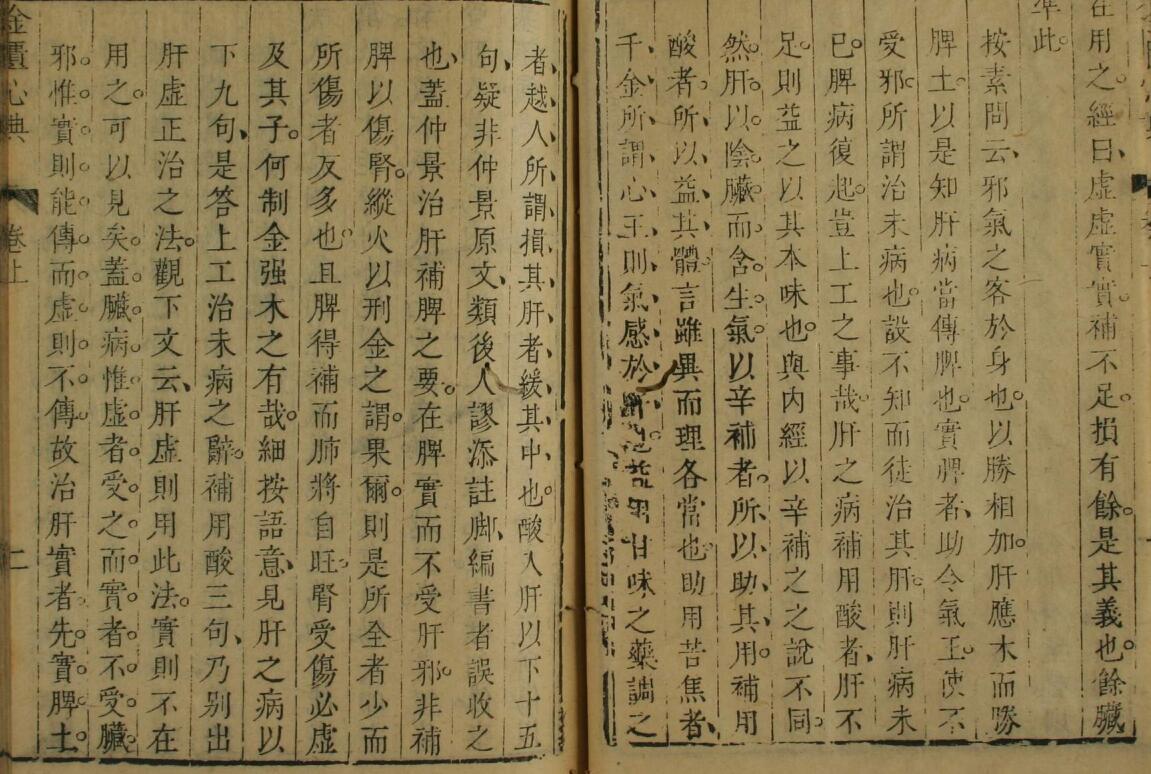 在用之經曰虛虛實實補不足損有餘是其義也餘臟
準此
按素問云邪氣之客於身也以勝相加肝應木而勝
脾土以是知肝病當傳脾也實脾者助令氣王使不
受邪所謂治未病也設不知而徒治其肝則肝病未
已脾病復起豈上工之事哉肝之病補用酸者肝不
足則益之以其本味也與內經以辛補之之說不同
然肝以陰臟而含生氣以辛補者所以助其用補用
酸者所以益其體言雖異而理各當也助用苦焦者
千金所謂心王則氣感於肝也益用甘味之藥調之
者越人所謂損其肝者緩其中也酸入肝以下十五
句疑非仲景原文類後人謬添註脚編書者誤收之
也蓋仲景治肝補脾之要在脾實而不受肝邪非補
脾以傷腎縱火以刑金之謂果爾則是所全者少而
所傷者反多也且脾得補而肺將自旺腎受傷必虛
及其子何制金强木之有哉細按語意見肝之病以
下九句是答上工治未病之辭補用酸三句乃別出
肝虛正治之法觀下文云肝虛則用此法實則不在
用之可以見矣蓋臟病惟虛者受之而實者不受臟
邪惟實則能傳而虛則不傳故治肝實者先實脾土
金匱心典
卷上
二